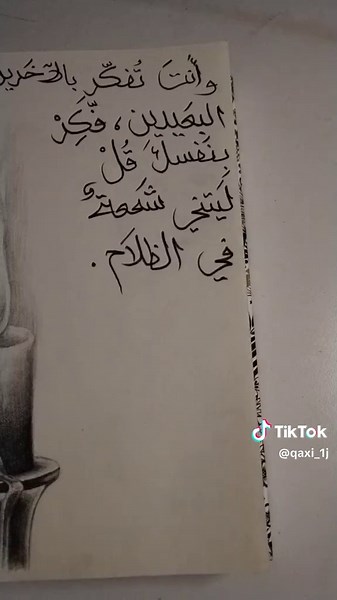 وأنتَ تُفكّر بالآخرين
البعيدين، فكِّرْ
بنفسك قُلْ
لَيتني شمعةٌ
في الظلام.
TikTok
@qaxi_1j